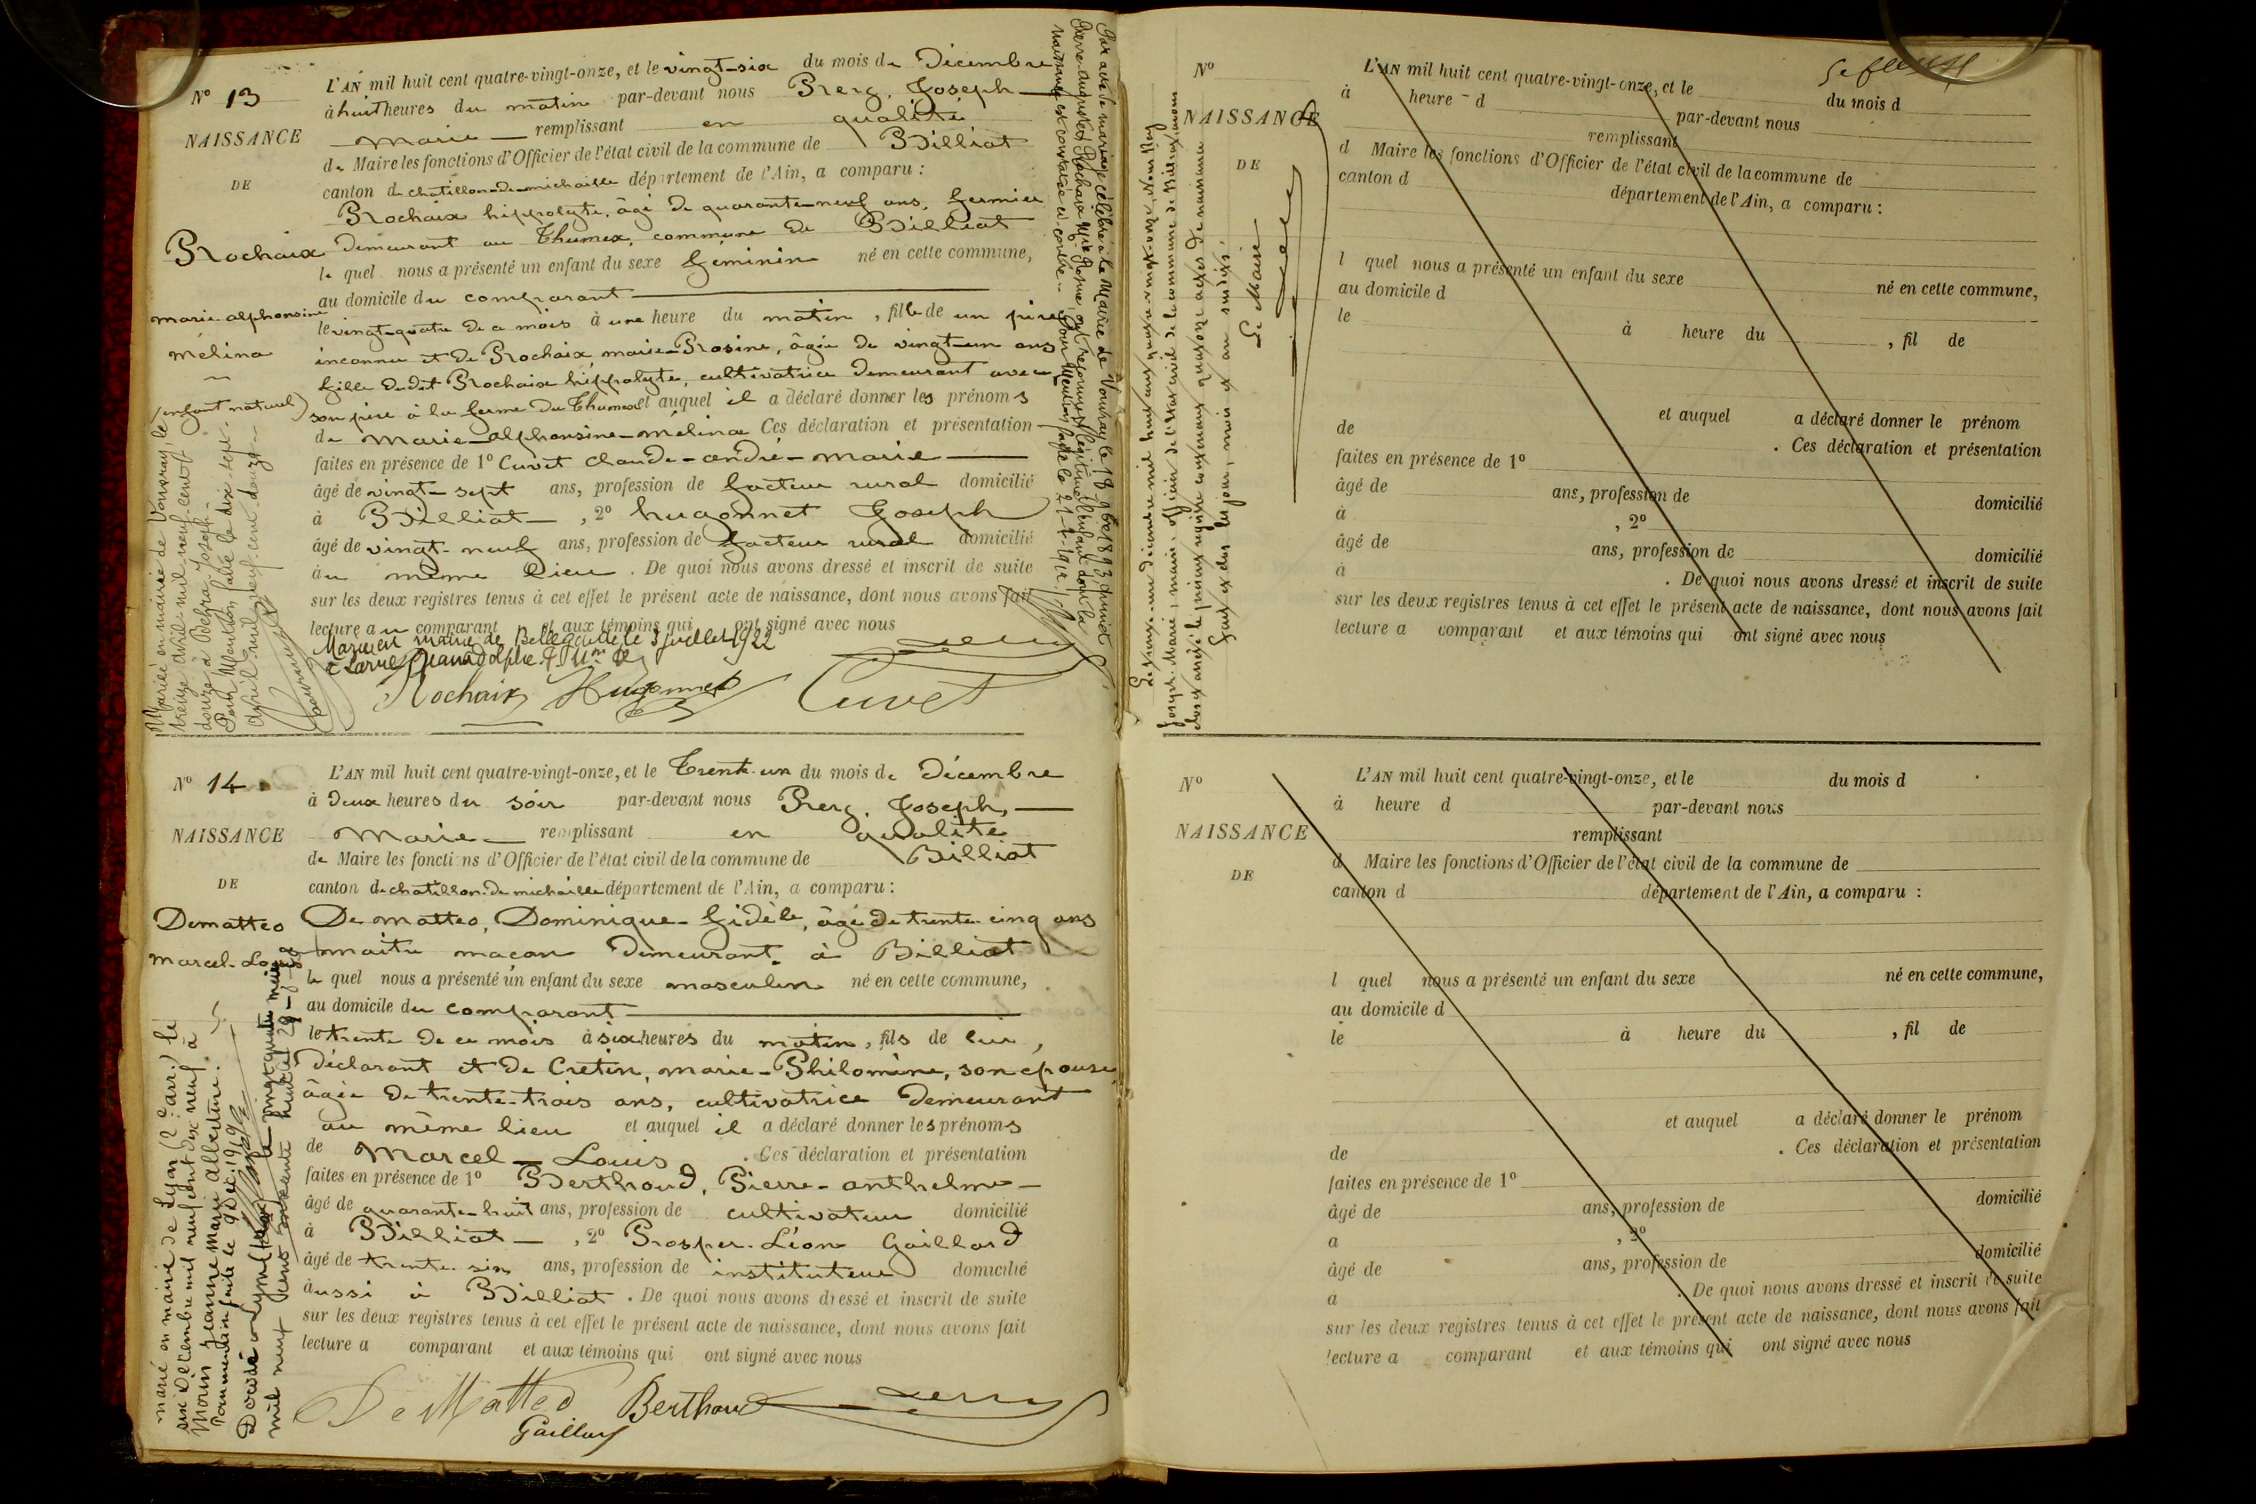 Nº 13
NAISSANCE
DE
Rochaix
marie-alphonsine
mélina
(enfant naturel)
L'AN mil huit cent quatre-vingt-onze, et le vingt-six du mois de Décembre
à huit heures du matin par-devant nous Prerg, Joseph
Marie remplissant en qualité
de Maire les fonctions d'Officier de l'état civil de la commune de Billiat
canton de chatillon-de-michaille département de l'Ain, a comparu :
Rochaix hippolyte, âgé de quarante-neuf ans, fermier
demeurant au Thumex, commune de Billiat
lequel nous a présenté un enfant du sexe féminin né en cette commune,
au domicile du comparant
le vingt-quatre de ce mois à une heure du matin, fille de un père
inconnu et de Rochaix marie-Rosine, âgée de vingt-un ans
fille dudit Rochaix hippolyte, cultivatrice demeurant avec
son père à la ferme du Thumex et auquel il a déclaré donner les prénoms
de Marie-alphonsine-mélina Ces déclaration et présentation
faites en présence de 1º Cuvet claude-andré-marie
âgé de vingt-sept ans, profession de facteur rural domicilié
à Billiat, 2º hugonnet Joseph
âgé de vingt-neuf ans, profession de facteur rural domicilié
au même lieu. De quoi nous avons dressé et inscrit de suite
sur les deux registres tenus à cet effet le présent acte de naissance, dont nous avons fait
lecture au comparant et aux témoins qui ont signé avec nous
Mariée en mairie de Bellegarde le 3 juillet 1922
Rochaix Hugonnet Cuvet
Mariée en mairie de Vouvray, le
treize avril mil neuf cent
douze à
Pour Mention faite le dix sept
avril mil neuf cent douze
Par acte de mariage célébré à la Mairie de Vouvray le 18 9bre 1893,
Nº 14
NAISSANCE
DE
Dematteo
Marcel-Louis
L'AN mil huit cent quatre-vingt-onze, et le Trente-un du mois de Décembre
à deux heures du soir par-devant nous Prerg, Joseph,
Marie remplissant en qualité
de Maire les fonctions d'Officier de l'état civil de la commune de Billiat
canton de chatillon-de-michaille département de l'Ain, a comparu :
De matteo, Dominique-fidèle, âgé de trente-cinq ans
maitre maçon demeurant à Billiat
le quel nous a présenté un enfant du sexe masculin né en cette commune,
au domicile du comparant
le trente de ce mois à six heures du matin, fils de lui,
déclarant et de Cretin, marie-Philomène, son épouse
âgée de trente-trois ans, cultivatrice demeurant
au même lieu et auquel il a déclaré donner les prénoms
de Marcel-Louis. Ces déclaration et présentation
faites en présence de 1º Berthoud, Pierre-anthelme
âgé de quarante-huit ans, profession de cultivateur domicilié
à Billiat, 2º Prosper-Léon Gaillard
âgé de trente-six ans, profession de instituteur domicilié
aussi à Billiat. De quoi nous avons dressé et inscrit de suite
sur les deux registres tenus à cet effet le présent acte de naissance, dont nous avons fait
lecture a comparant et aux témoins qui ont signé avec nous
De Matteo Berthoud
Gaillard
marié en mairie de Lyon (2e arr.) le
six Décembre mil neuf cent dix neuf à
Morin Jeanne Marie Albertine.
Pour mention faite le 9 Déc. 1919
Décédé à Lyon le vingt quatre
mil neuf cent soixante huit
Nº
NAISSANCE
DE
L'AN mil huit cent quatre-vingt-onze, et le du mois d
à heure d par-devant nous
remplissant
d Maire les fonctions d'Officier de l'état civil de la commune de
canton d département de l'Ain, a comparu :
l quel nous a présenté un enfant du sexe né en cette commune,
au domicile d
le à heure du , fil de
et auquel a déclaré donner le prénom
de . Ces déclaration et présentation
faites en présence de 1º
âgé de ans, profession de domicilié
à , 2º
âgé de ans, profession de domicilié
à . De quoi nous avons dressé et inscrit de suite
sur les deux registres tenus à cet effet le présent acte de naissance, dont nous avons fait
lecture a comparant et aux témoins qui ont signé avec nous
Le trente-un décembre mil huit cent quatre-vingt-onze, Nous
Joseph-Marie, maire, officier de l'état civil de la commune de Billiat, avons
clos et arrêté le présent registre contenant quatorze actes de naissance
Fait et clos les jour, mois et an susdits.
Le Maire
Nº
NAISSANCE
DE
L'AN mil huit cent quatre-vingt-onze, et le du mois d
à heure d par-devant nous
remplissant
d Maire les fonctions d'Officier de l'état civil de la commune de
canton d département de l'Ain, a comparu :
l quel nous a présenté un enfant du sexe né en cette commune,
au domicile d
le à heure du , fil de
et auquel a déclaré donner le prénom
de . Ces déclaration et présentation
faites en présence de 1º
âgé de ans, profession de domicilié
a , 2º
âgé de ans, profession de domicilié
a . De quoi nous avons dressé et inscrit de suite
sur les deux registres tenus à cet effet le présent acte de naissance, dont nous avons fait
lecture a comparant et aux témoins qui ont signé avec nous